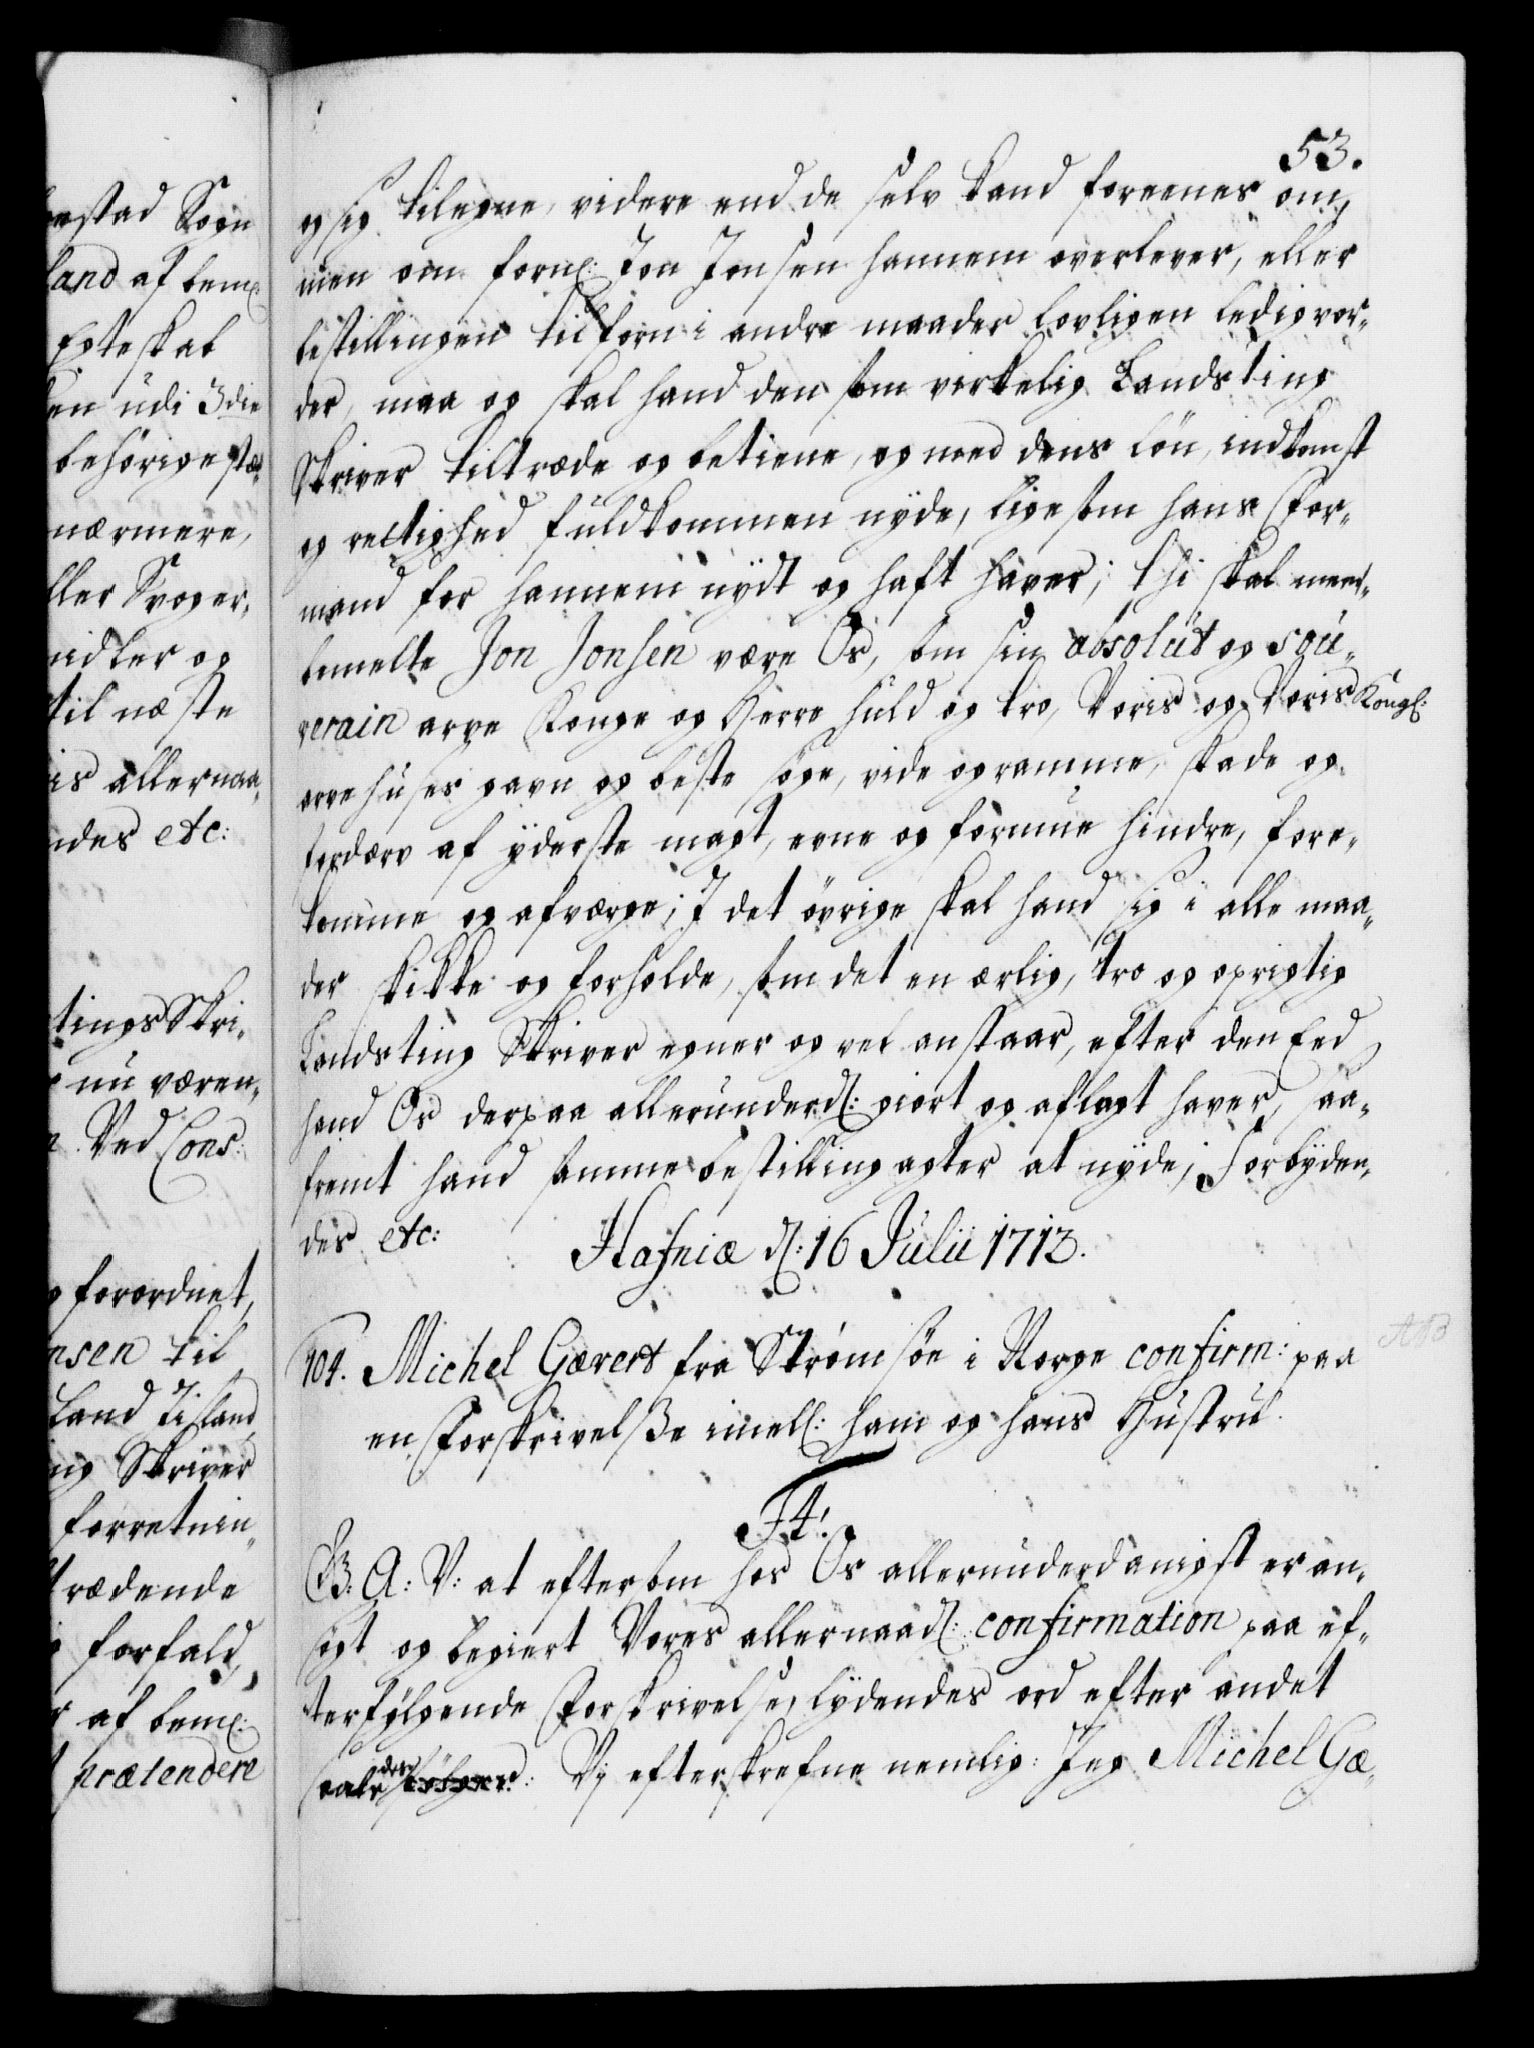 53.
og sig tilegne, videre end de selv kand foreenes om,
men om forn: Jon Jonsen hannem overlever, eller
bestillingen tilforn i andre maader lovligen ledig vor-
der, maa og skal hand den som virkelig Landsting
Skriver tiltræde og betiene, og med dens løn, indkomst
og rettighed fuldkommen nyde, lige som hans For-
mand for hannem nydt og haft haver; thi skal meer-
bemelte Jon Jonsen være Os, som sin absolut og sou-
verain arve Konge og Herre huld og tro, Voris og Voris Kongl:
arve huses gavn og beste søge, vide og ramme, skade og
fordærv af yderste magt, evne og formue hindre, fore-
komme og afværge; I det øvrige skal hand sig i alle maa-
der skikke og forholde, som det en ærlig, tro og oprigtig
Landsting Skriver egner og vel anstaar, efter den Eed
hand Os derpaa allerunderd: giort og aflagt haver, saa-
fremt hand samme bestilling agter at nyde; Forbyden-
des etc: Hafniæ d: 16 Julii 1713.
104. Michel Gævert fra Strømsøe i Norge confirm: paa
en Forskrivelsse imell: ham og hans Hustru.
F4.
G: A: V: at eftersom hos Os allerunderdanigst er an-
søgt og begiert Vores allernaad: confirmation paa ef-
terfølgende Forskrivelse, lydendes ord efter andet
saaledes: Vi efterskrefne nemlig: Jeg Michel Gæ-
estad Sogn
land af bem:
Egteskab
en udi 3die
behørige stæ-
nærmere,
ller Svoger-
midler og
til næste
is allernaa-
ndes etc:
tings Skri-
nu væren-
Ved Cons:
forordnet,
nsen til
Land Iisland
ng Skriver
forretnin-
trædende
forfald,
af bem:
prætendere